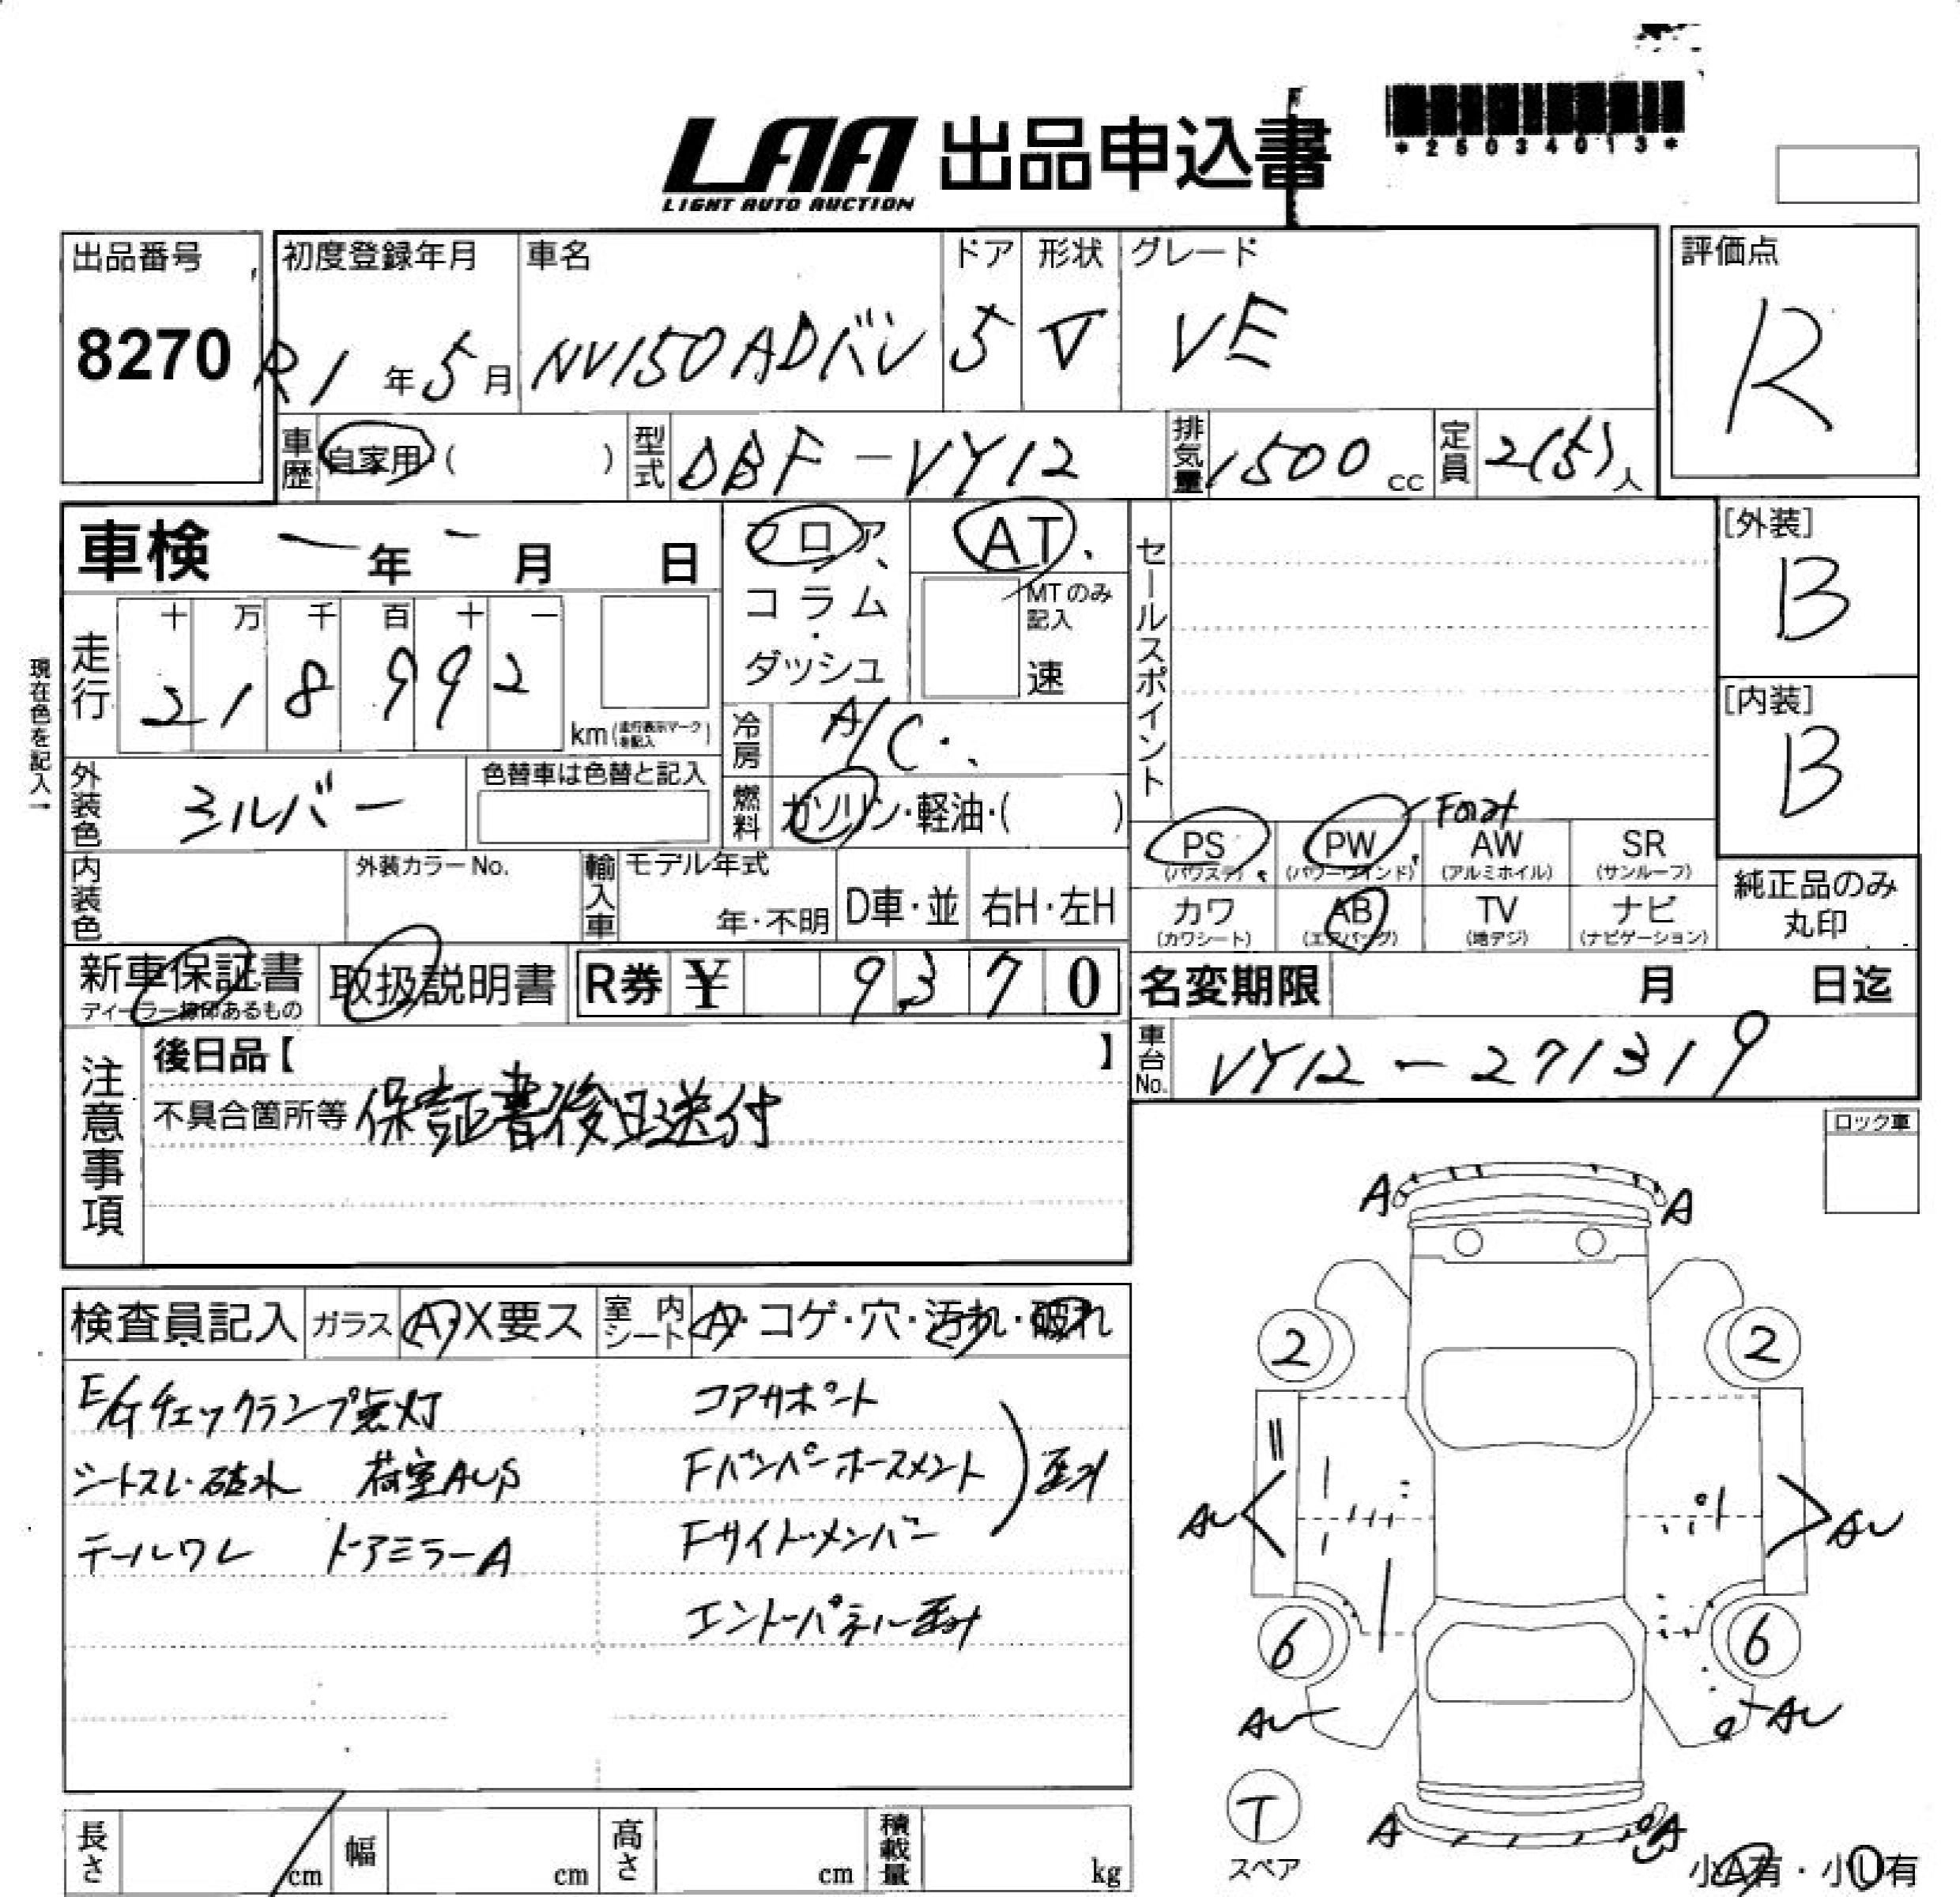 LAA 出品申込書
LIGHT AUTO AUCTION
*25034013*
出品番号 初度登録年月 車名 ドア 形状 グレード 評価点
8270 R1年5月 NV150ADバン 5 V VE R
車歴 自家用( ) 型式 DBF-VY12 排気量 1500cc 定員 2(5)人
車検 ー年 ー月 日
フロア、 AT、
コラム・ MTのみ記入
ダッシュ 速
セールスポイント
[外装]
B
[内装]
B
十 万 千 百 十 一
走行 2 1 8 9 9 2 km(走行表示マークを記入)
現在色を記入→
冷房 A/C・、
外装色 シルバー 色替車は色替と記入
燃料 ガソリン・軽油・( )
PS PW AW SR
(パワステ) (パワーウインド) (アルミホイル) (サンルーフ)
カワ AB TV ナビ
(カワシート) (エアバッグ) (地デジ) (ナビゲーション)
純正品のみ
丸印
内装色 外装カラーNo. 輸入車 モデル年式 年・不明 D車・並 右H・左H
新車保証書 取扱説明書 R券 ¥ 9,370
ディーラー捺印あるもの
名変期限 月 日迄
車台No. VY12-271319
注意事項
後日品【 】
不具合箇所等 保証書後日送付
ロック車
検査員記入 ガラス A・X要ス 室内シート A・コゲ・穴・汚れ・破れ
E/Gチェックランプ点灯 コアサポート
シートスレ・破れ 荷室AUS Fバンパーホースメント 歪み
テールワレ ドアミラーA Fサイドメンバー
エンドパネル歪み
A A
2 2
AU AU
6 6
AU AU
T
スペア
A A
小A有・小U有
長さ cm 幅 cm 高さ cm 積載量 kg